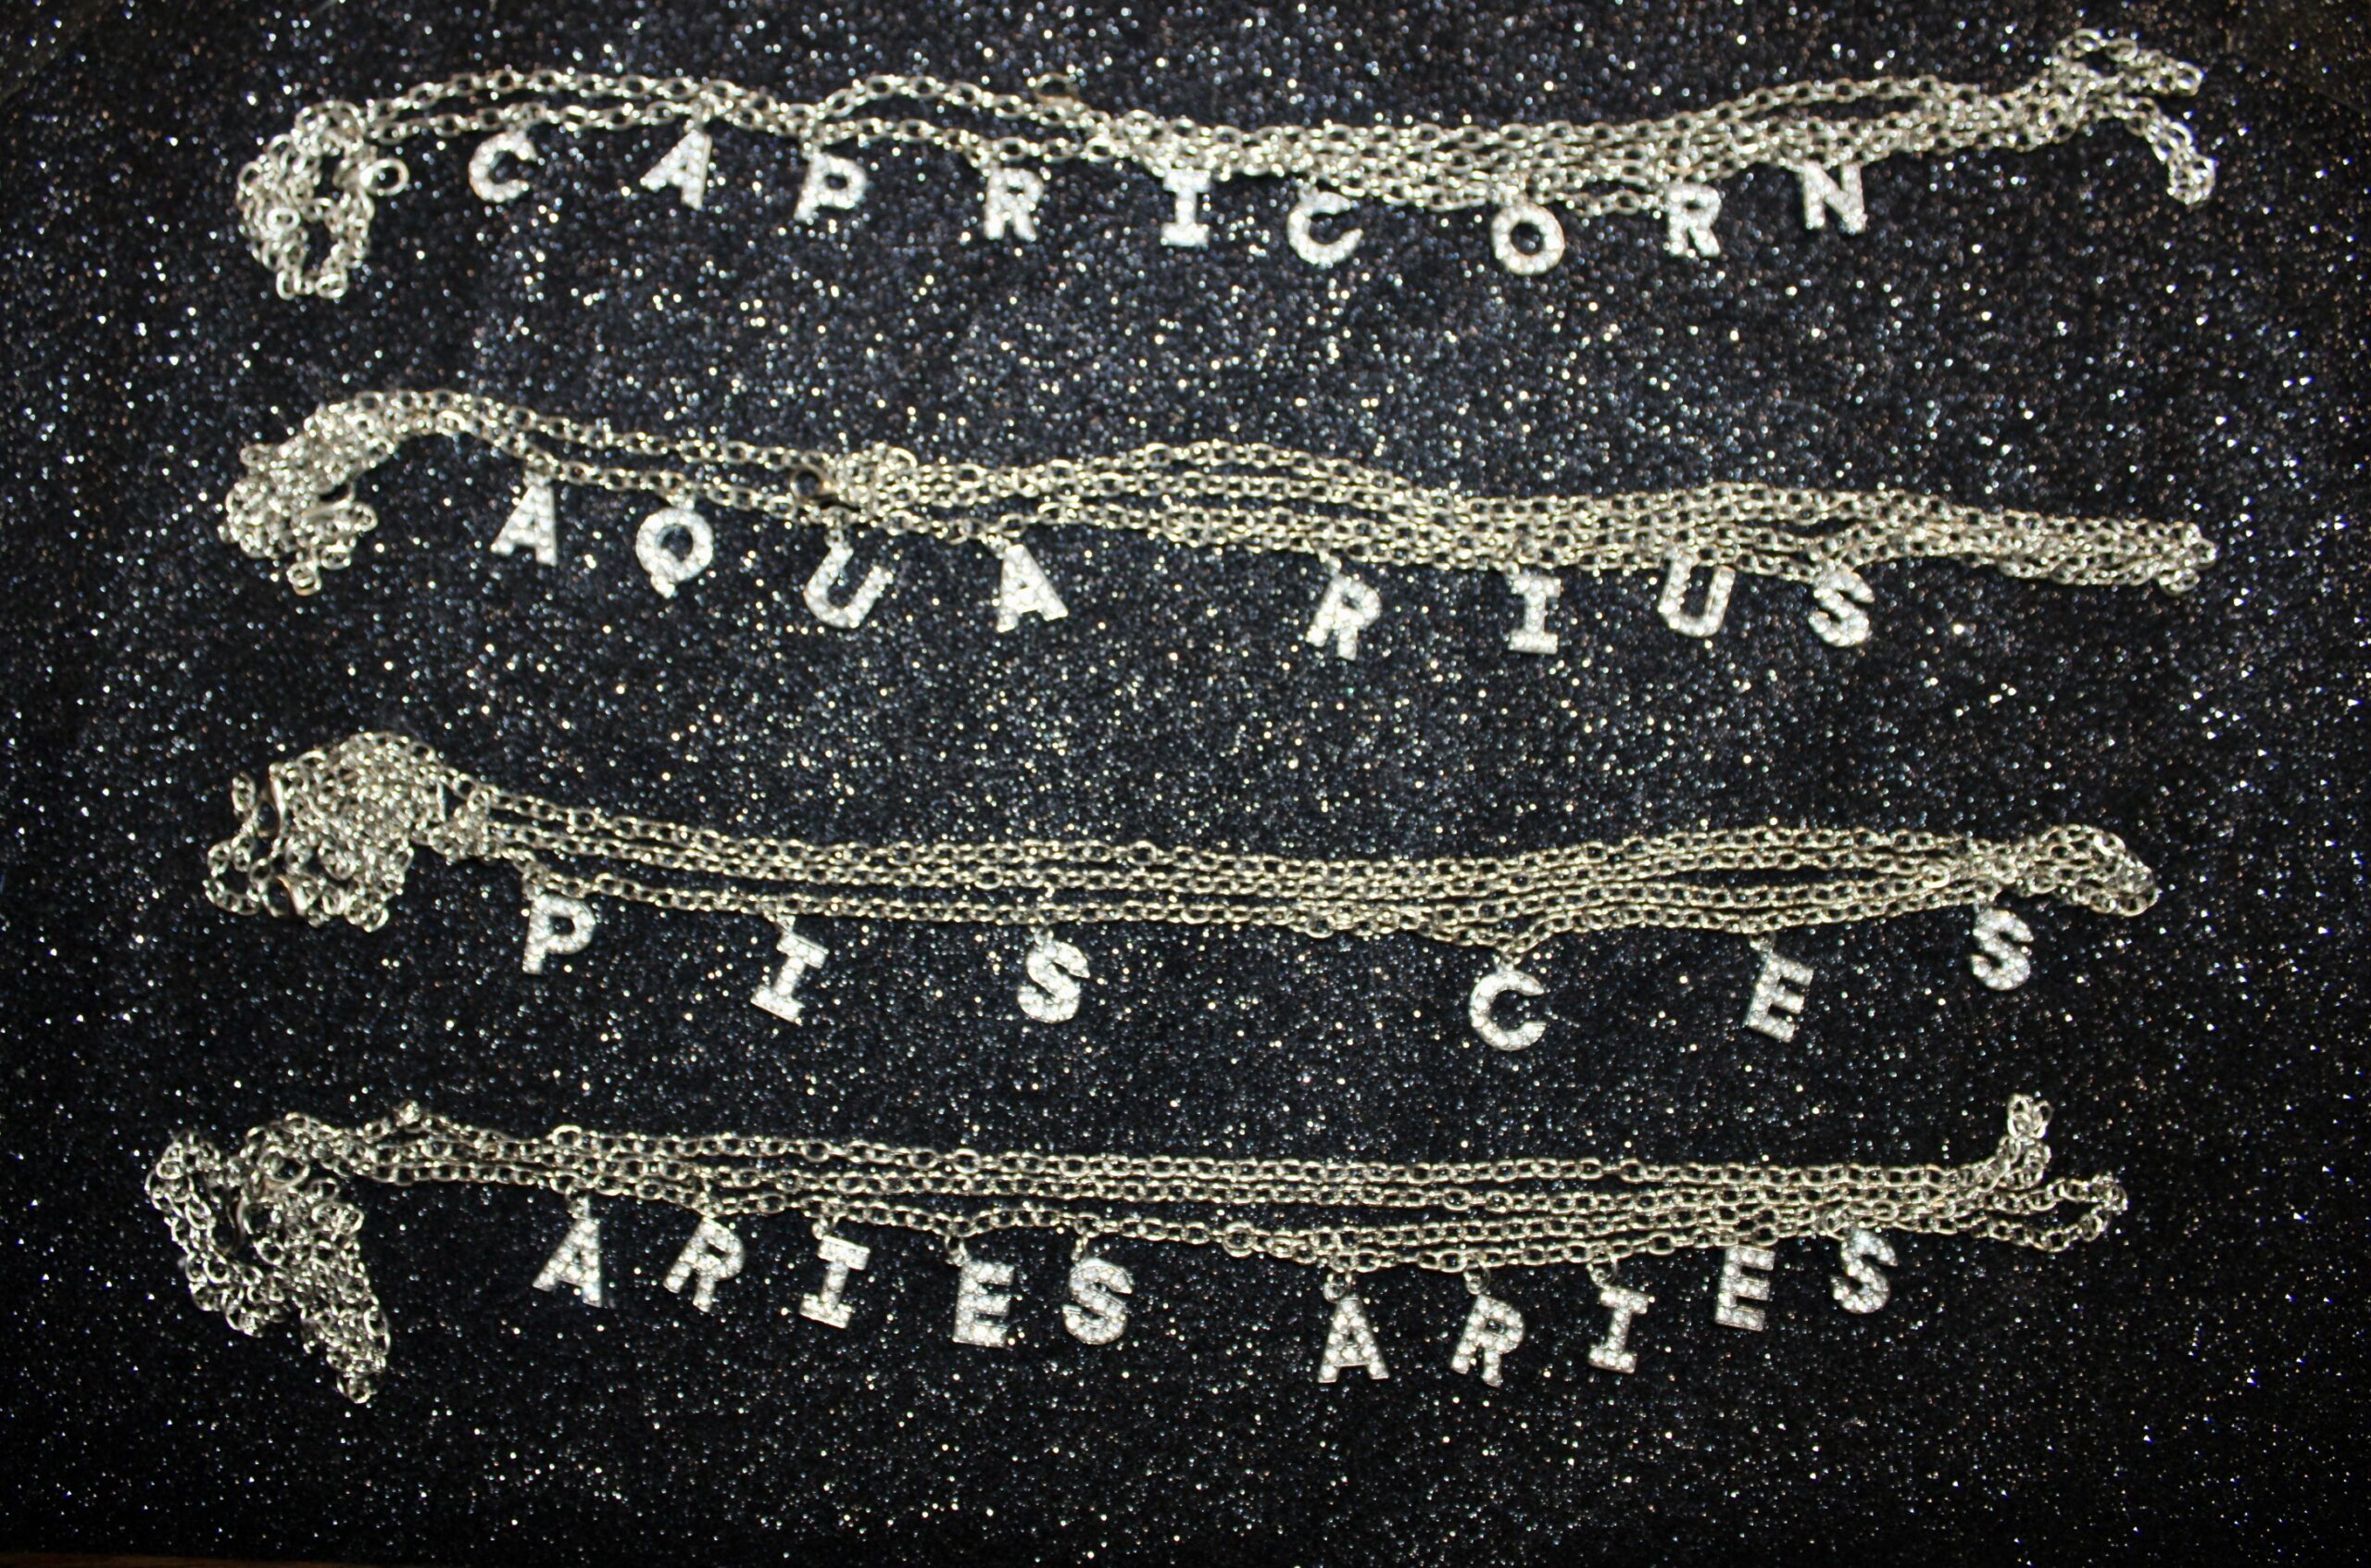 CAPRICORN
AQUARIUS
PISCES
ARIES ARIES